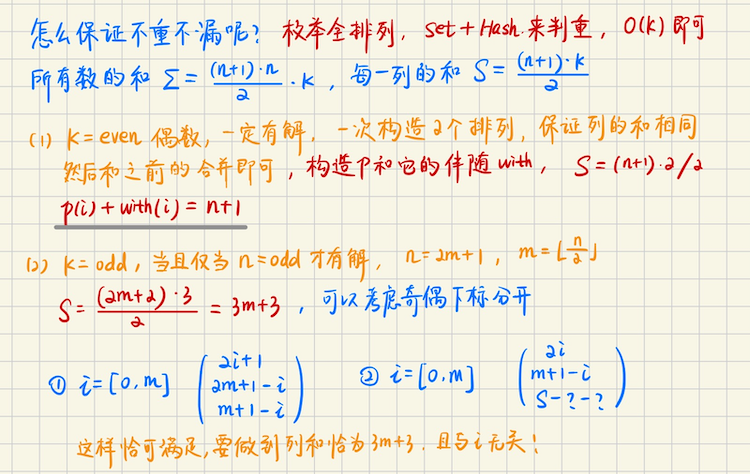 怎么保证不重不漏呢? 枚举全排列, set+Hash.来判重, O(k)即可
所有数的和 Σ = (n+1)·n/2 · k , 每一列的和 S = (n+1)·k/2
(1) k=even 偶数, 一定有解, 一次构造2个排列, 保证列的和相同
然后和之前的合并即可, 构造P和它的伴随with, S=(n+1)·2/2
p(i)+with(i)=n+1
(2) k=odd, 当且仅当n=odd才有解, n=2m+1, m=⌊n/2⌋
S = (2m+2)·3/2 = 3m+3 , 可以考虑奇偶下标分开
① i=[0,m] (2i+1 ② i=[0,m] (2i
2m+1-i m+1-i
m+1-i) S-?-?)
这样恰可满足,要做到列和恰为3m+3. 且与i无关!